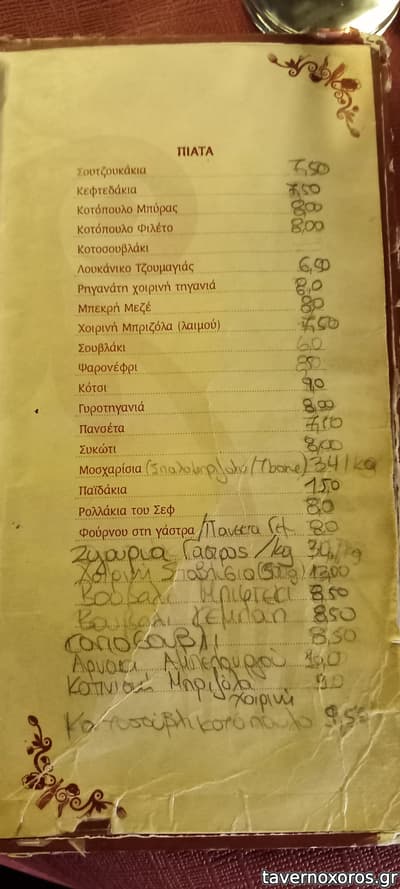 ΠΙΑΤΑ
Σουτζουκάκια 7,50
Κεφτεδάκια 7,50
Κοτόπουλο Μπύρας 8,00
Κοτόπουλο Φιλέτο 8,00
Κοτοσουβλάκι
Λουκάνικο Τζουμαγιάς 6,50
Ρηγανάτη χοιρινή τηγανιά 8,0
Μπεκρή Μεζέ 8,0
Χοιρινή Μπριζόλα (λαιμού) 7,50
Σουβλάκι 6,0
Ψαρονέφρι
Κότσι 9,0
Γυροτηγανιά 8,00
Πανσέτα
Συκώτι 8,00
Μοσχαρίσια (Σπαλομπριζόλα/Tbone) 34/kg
Παϊδάκια
Ρολλάκια του Σεφ 8,0
Φούρνου στη γάστρα /Πανσετα 8,0
/kg
Χοιρινή (500g) 12,00
Βουβαλι Μπιφτεκι 8,50
Βουβαλι Κεμπαπ 8,50
8,50
Αρνακι Αμπελουργού
Καπνιστή Μπριζόλα 9,0
χοιρινή
κοτόπουλο 9,50
tavernoxoros.gr